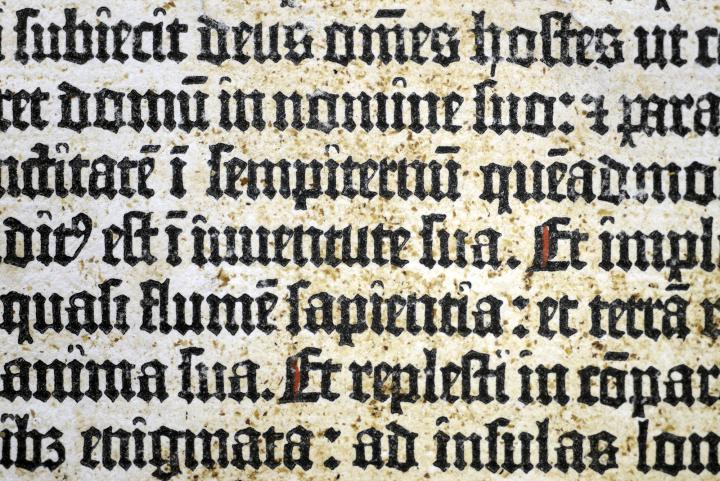 i subiecit deus om̄es hostes ut c
ret domū in nomine suo: ⁊ para
nctitatē ī sempiternū quēadmo
dit⁹ est ī iuuentute sua. Et impl
quasi flumē sapientia: et terrā r
anima sua. Et replesti in cōpar
ibꝫ enigmata: ad insulas lon